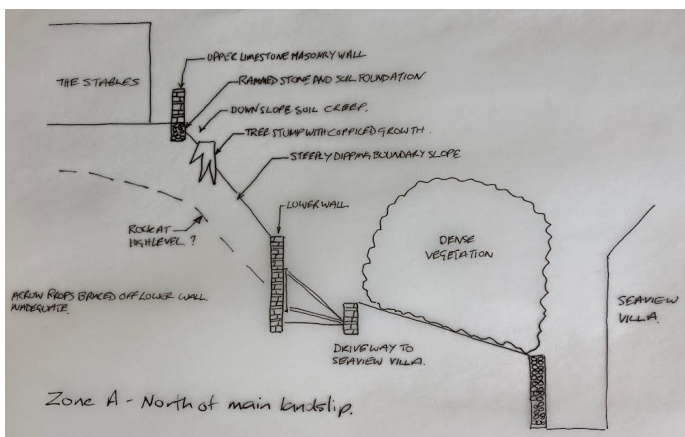 UPPER LIMESTONE MASONRY WALL
THE STABLES
RAMMED STONE AND SOIL FOUNDATION
DOWNSLOPE SOIL CREEP.
TREE STUMP WITH COPPICED GROWTH.
STEEPLY DIPPING BOUNDARY SLOPE
LOWER WALL
ROCK AT
HIGH LEVEL ?
DENSE
VEGETATION
ACROW PROPS BRACED OFF LOWER WALL.
INADEQUATE.
SEAVIEW
VILLA.
DRIVEWAY TO
SEAVIEW VILLA.
Zone A - North of main landslip.